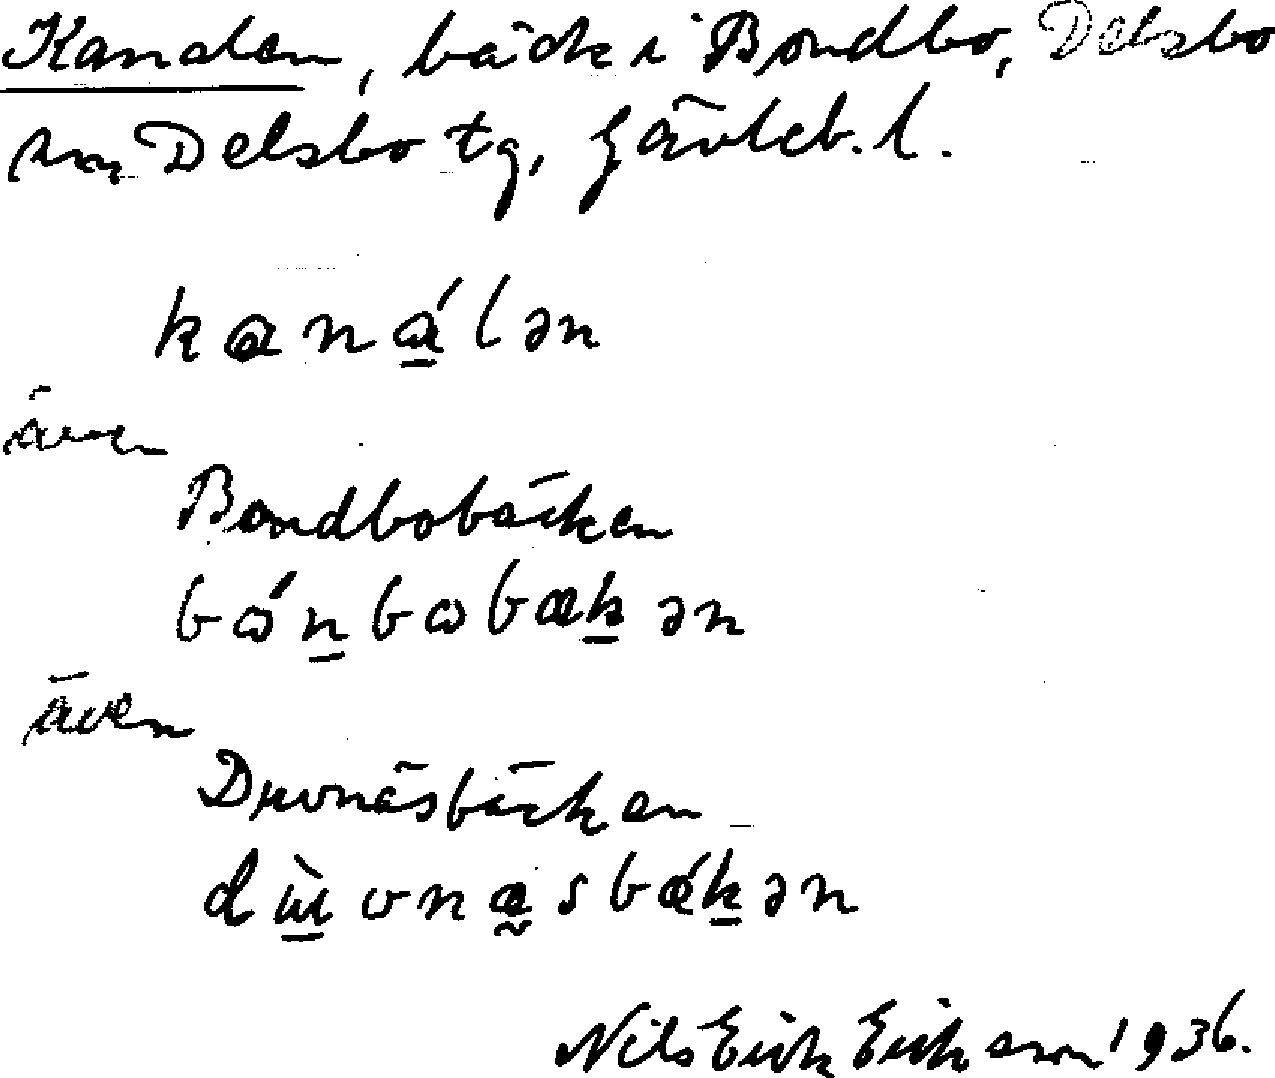 Kanalen, bäck i Bondbo, Delsbo
sn, Delsbo tg, Gävleb. l.
kanálən
även
Bondbobäcken
bón̲bobæk̲ən
även
Duvnäsbäcken
dɯ̲̀vnæ̰sbǽk̲ən
Nils Erik Erikson 1936.